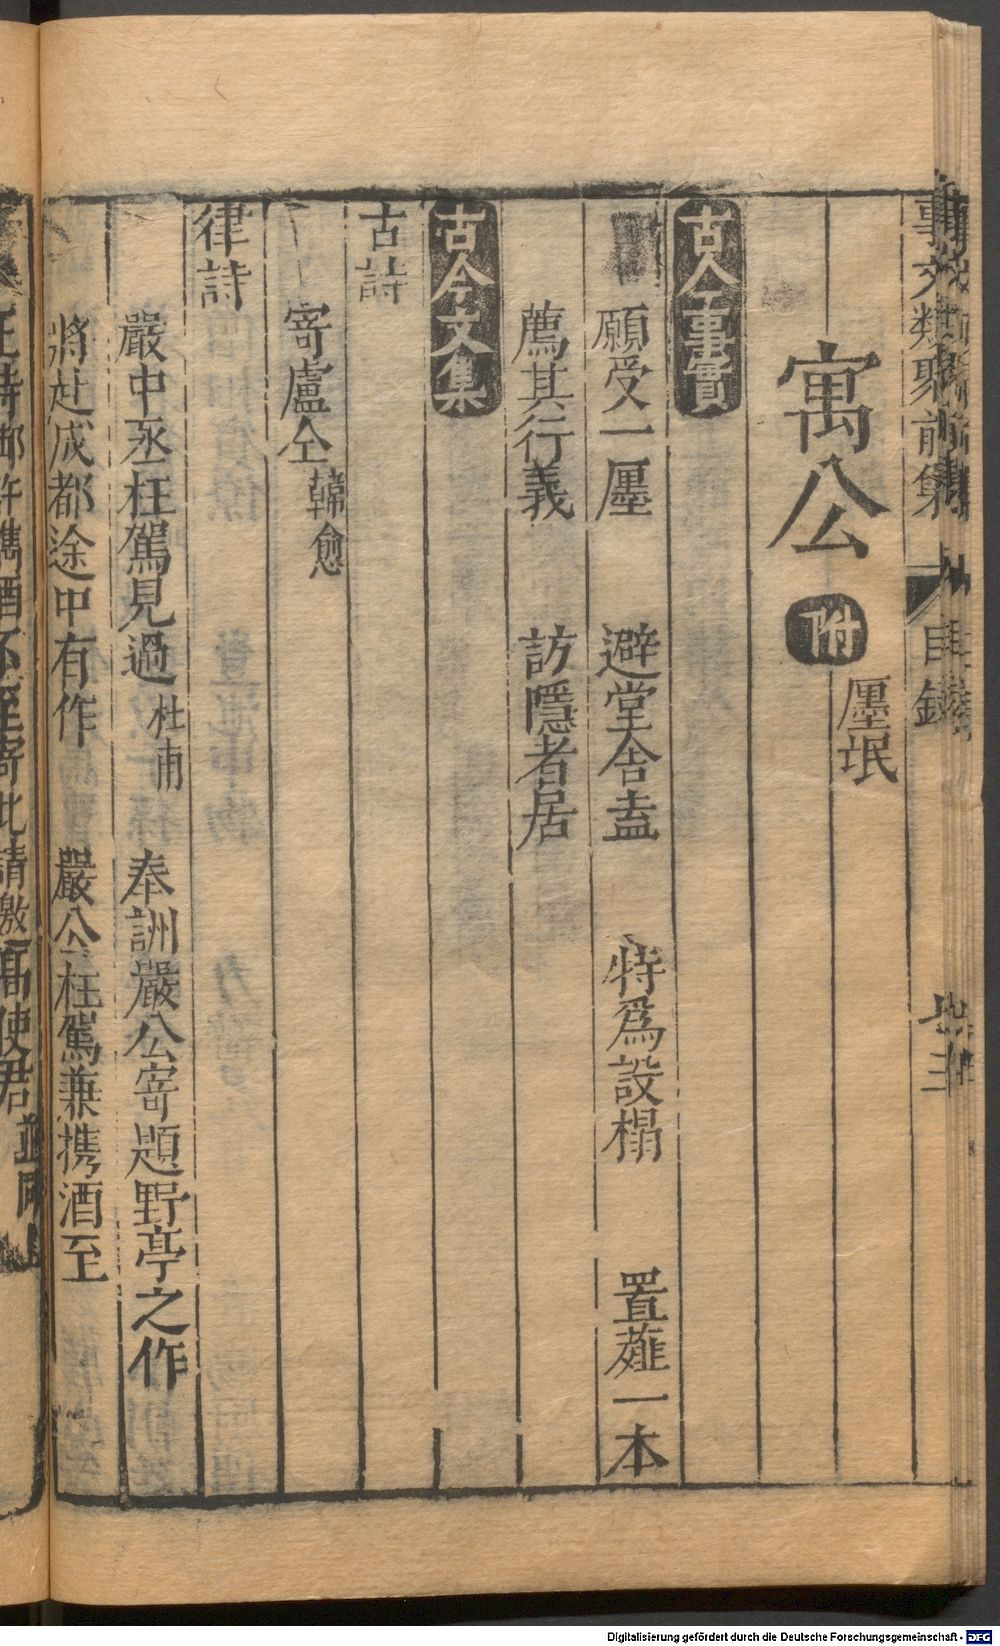 事文類聚前集 目錄
寓公 附 㕓氓
古今事實
願受一㕓 避堂舍盖 特爲設榻 置薤一本
薦其行義 訪隱者居
古今文集
古詩
寄盧仝 韓愈
律詩
嚴中丞枉駕見過 杜甫 奉詶嚴公寄題野亭之作
將赴成都途中有作 嚴公枉駕兼携酒至
王侍御許携酒不至寄此請邀高使君
Digitalisierung gefördert durch die Deutsche Forschungsgemeinschaft - DFG